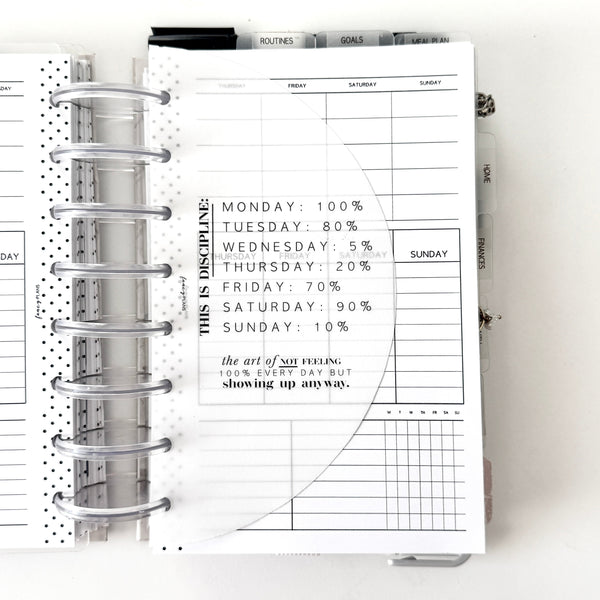 ROUTINES
GOALS
MEAL PLAN
THURSDAY FRIDAY SATURDAY SUNDAY
HOME
FINANCES
THIS IS DISCIPLINE:
MONDAY: 100%
TUESDAY: 80%
WEDNESDAY: 5%
THURSDAY: 20%
FRIDAY: 70%
SATURDAY: 90%
SUNDAY: 10%
THURSDAY FRIDAY SATURDAY SUNDAY
the art of NOT FEELING
100% EVERY DAY BUT
showing up anyway.
fancy PLANS
fancy PLANS
M T W TH F SA SU